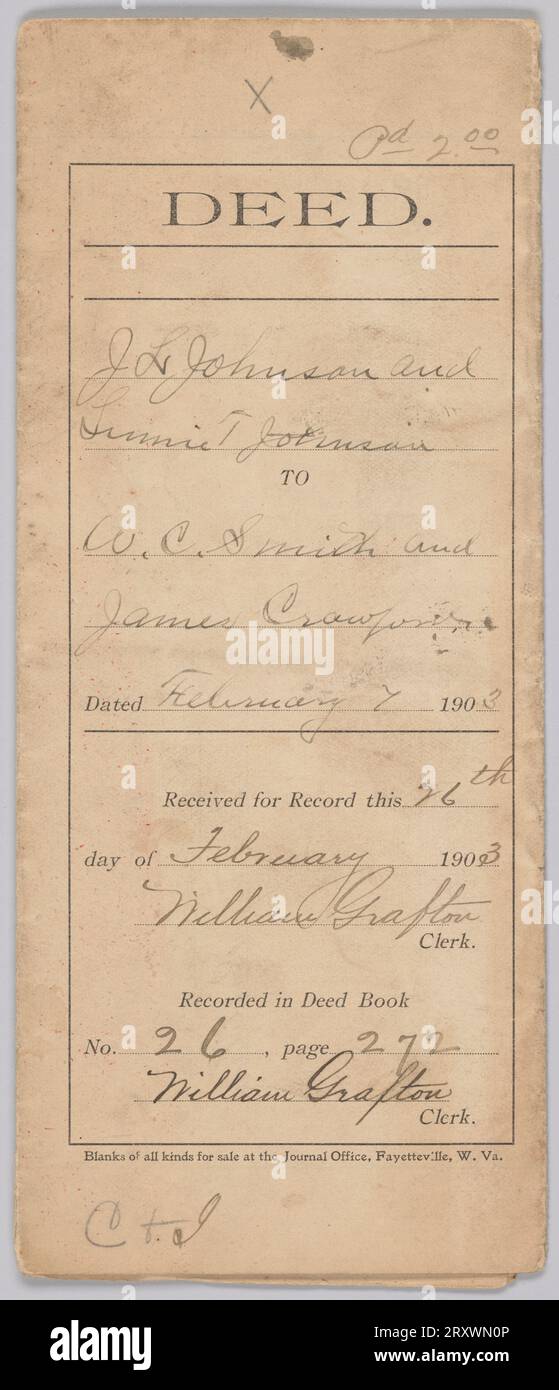 X
Pd 2.00
DEED.
J L Johnson and
Linnie T Johnson
TO
W. C. Smith and
James Crawford
Dated February 7 1903
Received for Record this 26th
day of February 1903
William Grafton
Clerk.
Recorded in Deed Book
No. 26, page 272
William Grafton
Clerk.
Blanks of all kinds for sale at the Journal Office, Fayetteville, W. Va.
C & I
alamy
Image ID: 2RXWN0P
www.alamy.com